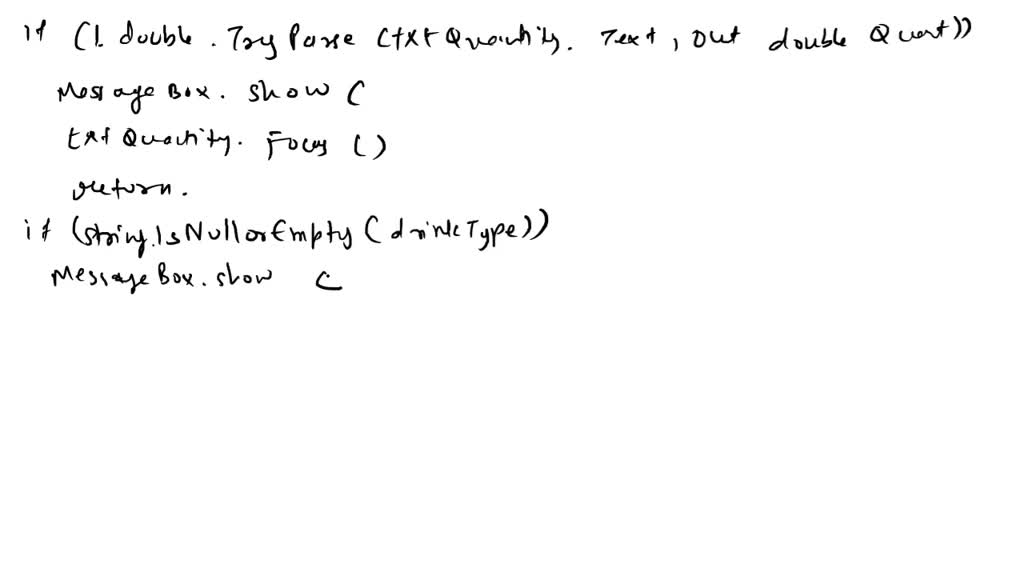 if (!. double . Try Parse (txt Quantity. Text, out double Quant))
Message Box. Show (
txt Quantity. Focus ()
return.
if (string.IsNullorEmpty (drinkType))
Message Box. show (